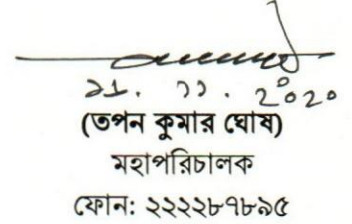 ২১. ১১. ২০২০
(তপন কুমার ঘোষ)
মহাপরিচালক
ফোন: ২২২২৮৭৮৯৫